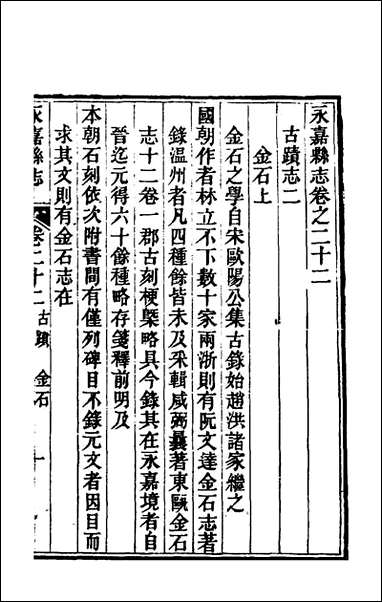 永嘉縣志卷之二十二
古蹟志二
金石上
金石之學自宋歐陽公集古錄始趙洪諸家繼之
國朝作者林立不下數十家兩浙則有阮文達金石志著
錄溫州者凡四種餘皆未及采輯咸弼曩著東甌金石
志十二卷一郡古刻梗槩略具今錄其在永嘉境者自
晉迄元得六十餘種略存箋釋前明及
本朝石刻依次附書間有僅列碑目不錄元文者因目而
求其文則有金石志在
永嘉縣志 卷二十二 古蹟 金石 一